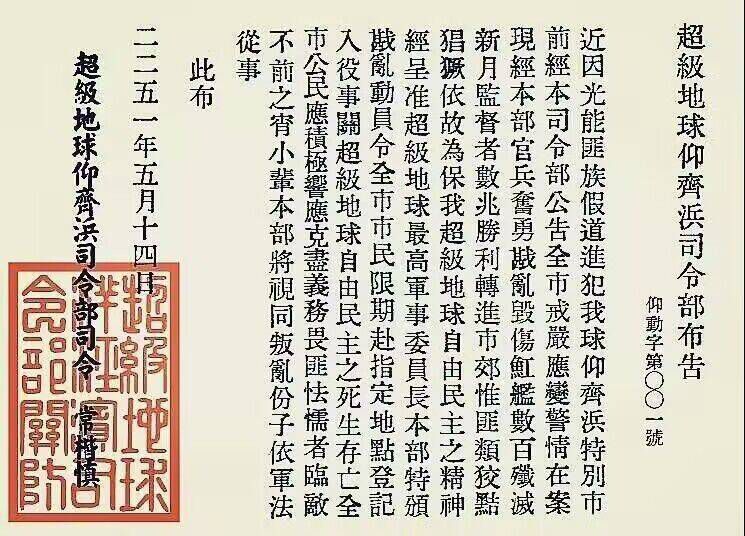 超級地球仰齊浜司令部布告
仰動字第〇〇一號
近因光能匪族假道進犯我球仰齊浜特別市
前經本司令部公告全市戒嚴應變警情在案
現經本部官兵奮勇戡亂毀傷魟艦數百殲滅
新月監督者數兆勝利轉進市郊惟匪類狡黠
猖獗依故為保我超級地球自由民主之精神
經呈准超級地球最高軍事委員長本部特頒
戡亂動員令全市市民限期赴指定地點登記
入役事關超級地球自由民主之死生存亡全
市公民應積極響應克盡義務畏匪怯懦者臨敵
不前之宵小輩本部將視同叛亂份子依軍法
從事
此布
二二五一年五月十四日
超級地球仰齊浜司令部司令 常楷慎
超級地球
司
令部關防